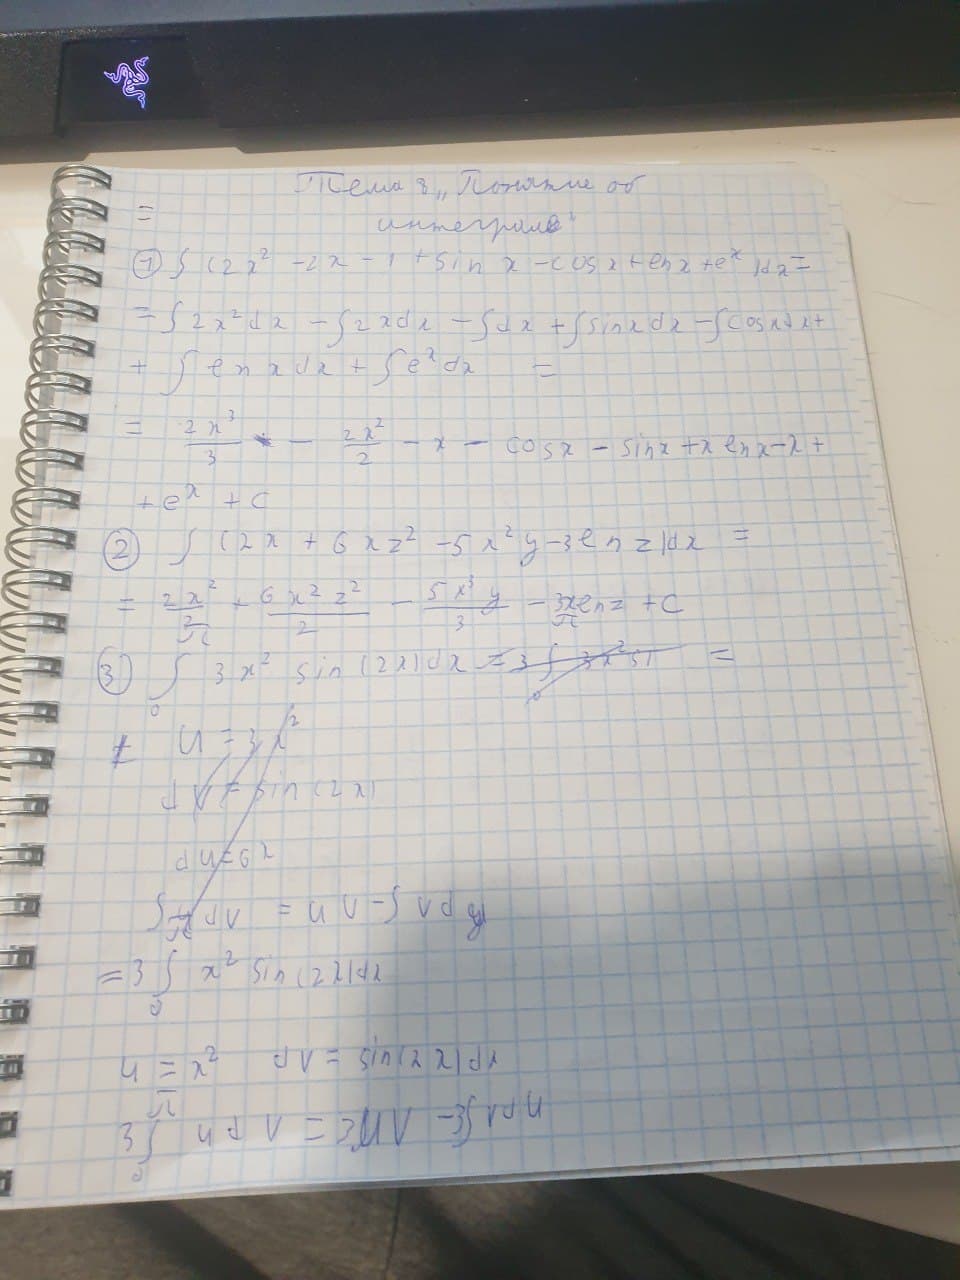 Тема 8 „Понятие об
интеграле"
=
① ∫ (2x² - 2x - 1 + sin x - cos x + ln x + eˣ)dx =
= ∫ 2x²dx - ∫ 2xdx - ∫ dx + ∫ sinx dx - ∫ cosx dx +
+ ∫ ln x dx + ∫ eˣ dx =
= 2x³/3 - 2x²/2 - x - cosx - sinx + x ln x - x +
+ eˣ + C
② ∫ (2x + 6xz² - 5x²y - 3ln z)dx =
= 2x²/2 + 6x²z²/2 - 5x³y/3 - 3x ln z + C
③ ∫₀^π 3x² sin(2x)dx = 3 ∫₀^π 3x² si =
U = 3x²
dV = sin(2x)
du = 6x
∫ u dv = uv - ∫ v du
= 3 ∫₀^π x² sin(2x)dx
u = x² dv = sin(2x)dx
3 ∫₀^π u dv = 3uv - 3∫ v du